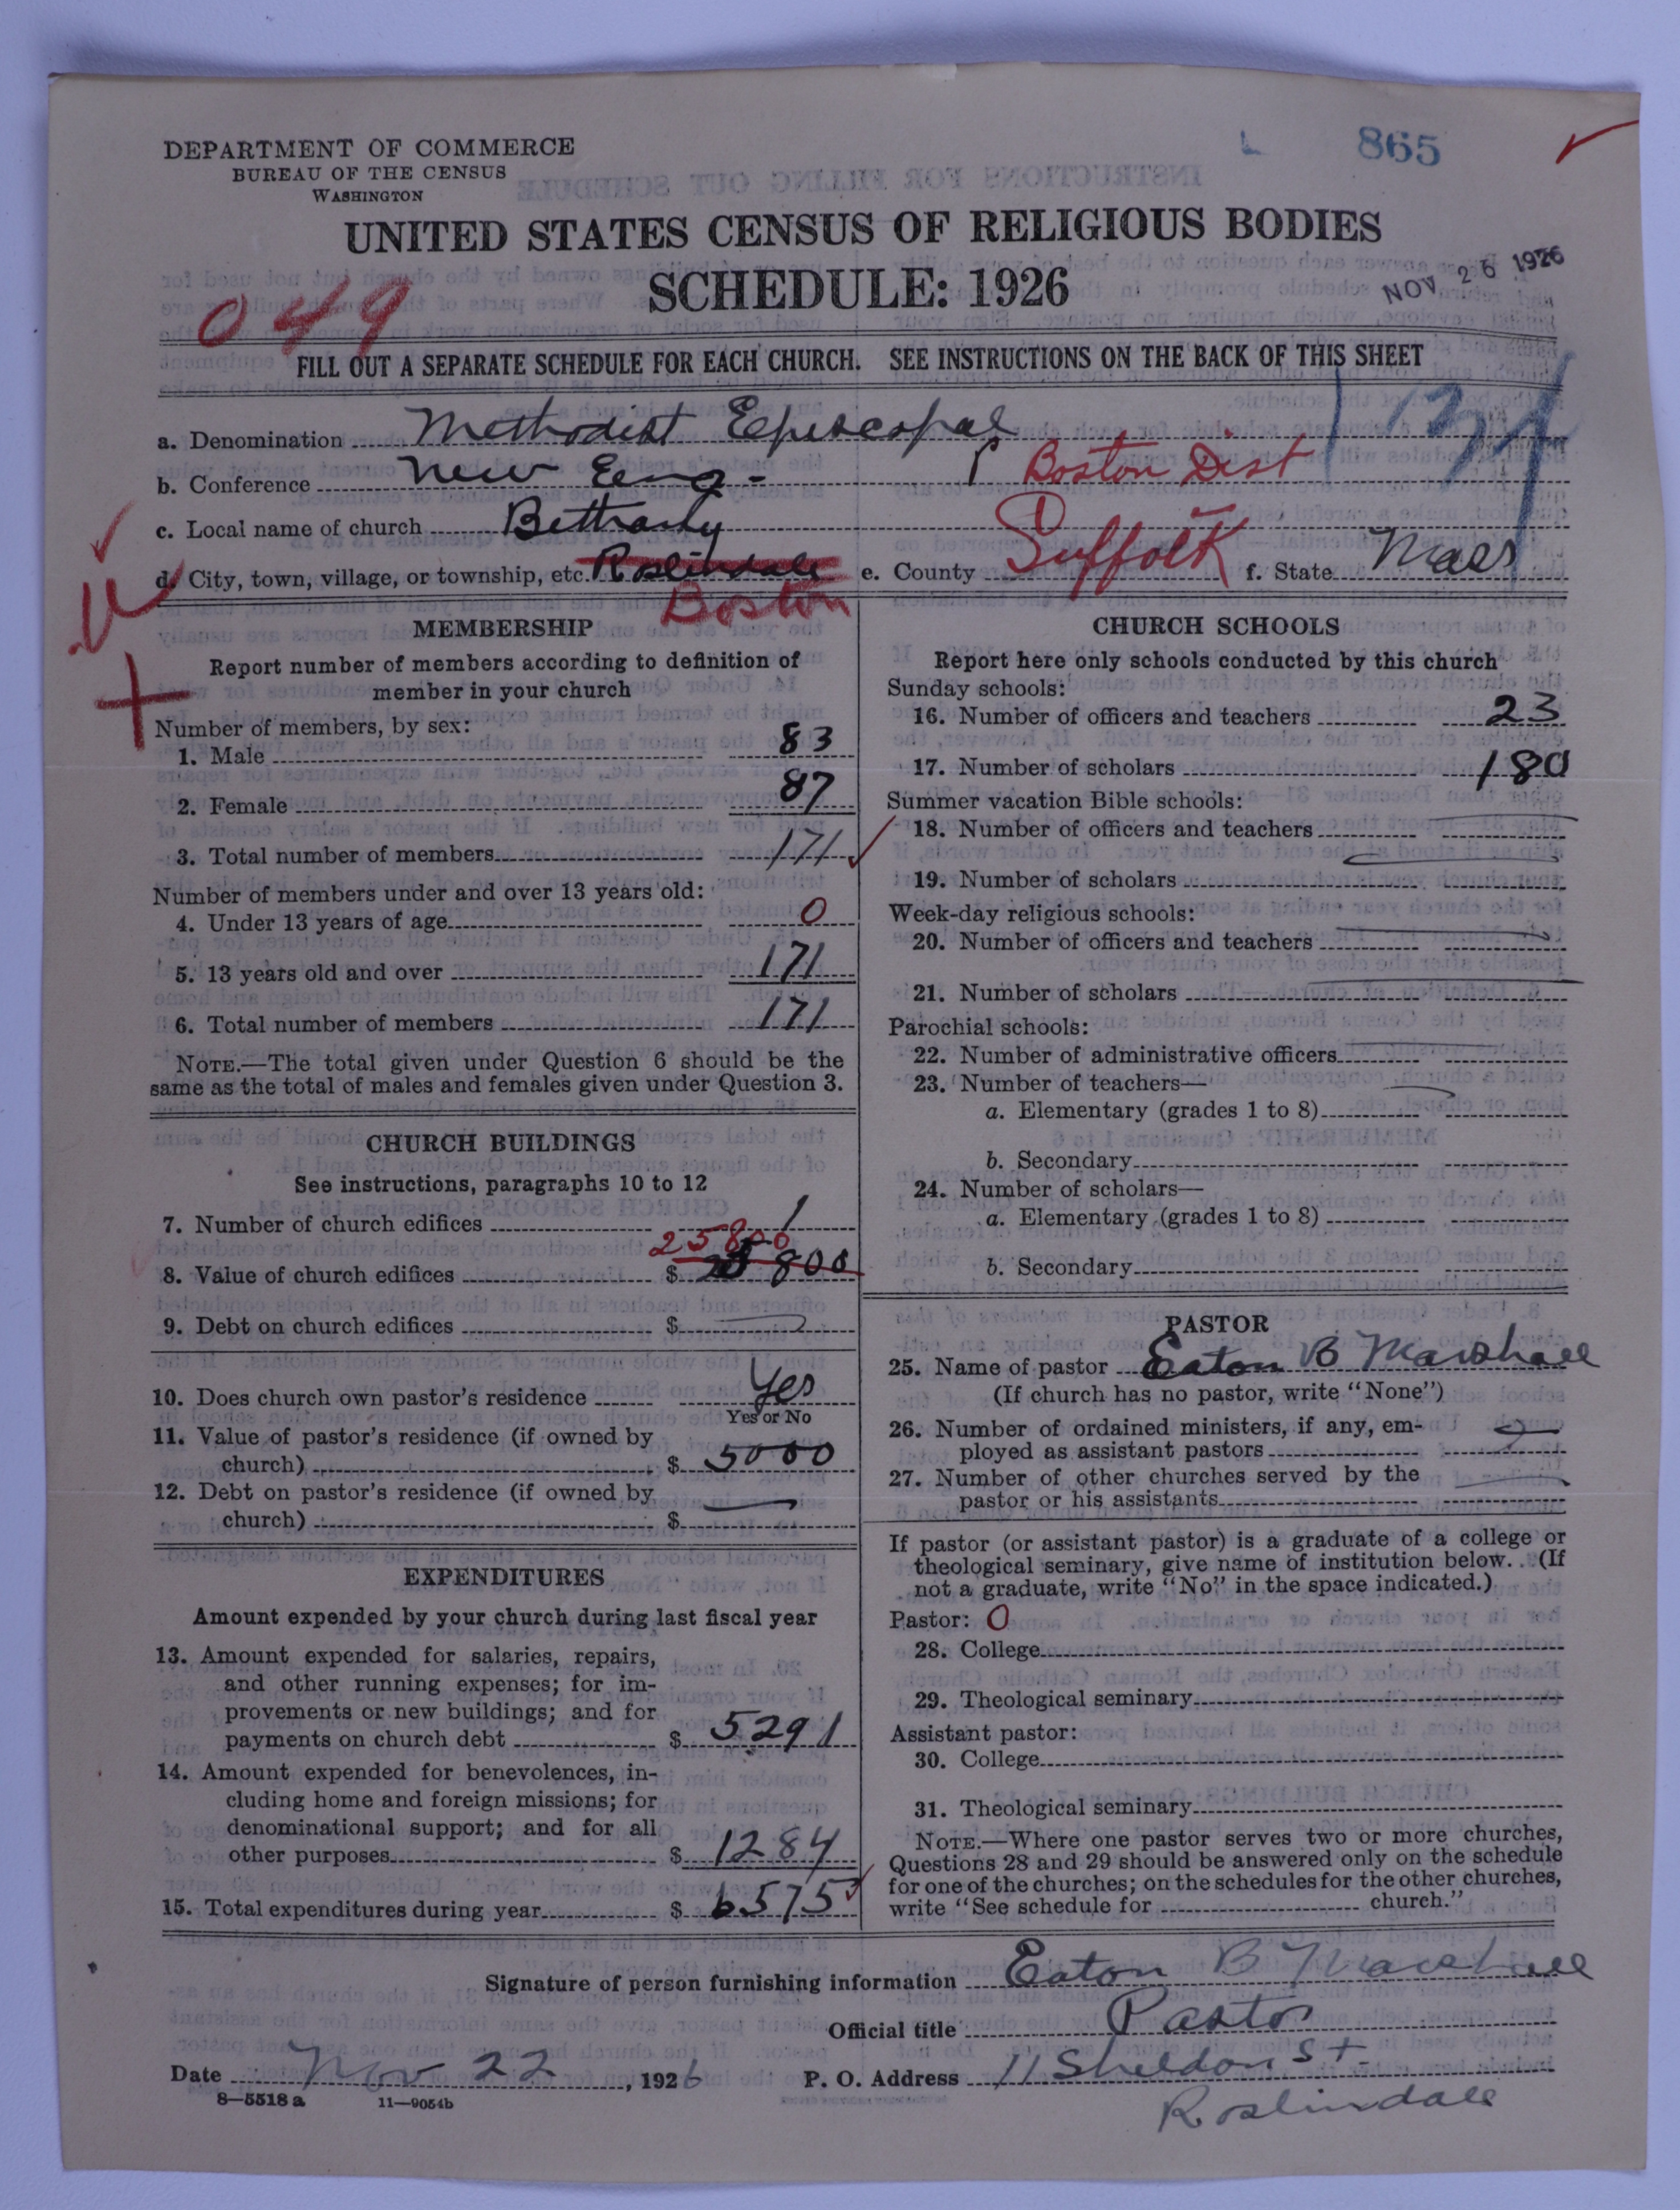 DEPARTMENT OF COMMERCE
BUREAU OF THE CENSUS
WASHINGTON
865
UNITED STATES CENSUS OF RELIGIOUS BODIES
SCHEDULE: 1926
NOV 26 1926
049
FILL OUT A SEPARATE SCHEDULE FOR EACH CHURCH. SEE INSTRUCTIONS ON THE BACK OF THIS SHEET
a. Denomination Methodist Episcopal
b. Conference New Eng - Boston Dist
c. Local name of church Bethany
d. City, town, village, or township, etc. Roslindale e. County Suffolk f. State Mass
Boston
MEMBERSHIP
Report number of members according to definition of
member in your church
Number of members, by sex:
1. Male 83
2. Female 87
3. Total number of members 171
Number of members under and over 13 years old:
4. Under 13 years of age 0
5. 13 years old and over 171
6. Total number of members 171
NOTE.—The total given under Question 6 should be the
same as the total of males and females given under Question 3.
CHURCH BUILDINGS
See instructions, paragraphs 10 to 12
7. Number of church edifices 1
25800
8. Value of church edifices $ 25 800
9. Debt on church edifices $
10. Does church own pastor's residence Yes
Yes or No
11. Value of pastor's residence (if owned by
church) $ 5000
12. Debt on pastor's residence (if owned by
church) $
EXPENDITURES
Amount expended by your church during last fiscal year
13. Amount expended for salaries, repairs,
and other running expenses; for im-
provements or new buildings; and for
payments on church debt $ 5291
14. Amount expended for benevolences, in-
cluding home and foreign missions; for
denominational support; and for all
other purposes $ 1284
15. Total expenditures during year $ 6575
CHURCH SCHOOLS
Report here only schools conducted by this church
Sunday schools:
16. Number of officers and teachers 23
17. Number of scholars 180
Summer vacation Bible schools:
18. Number of officers and teachers
19. Number of scholars
Week-day religious schools:
20. Number of officers and teachers
21. Number of scholars
Parochial schools:
22. Number of administrative officers
23. Number of teachers—
a. Elementary (grades 1 to 8)
b. Secondary
24. Number of scholars—
a. Elementary (grades 1 to 8)
b. Secondary
PASTOR
25. Name of pastor Eaton B Marshall
(If church has no pastor, write "None")
26. Number of ordained ministers, if any, em-
ployed as assistant pastors
27. Number of other churches served by the
pastor or his assistants
If pastor (or assistant pastor) is a graduate of a college or
theological seminary, give name of institution below. (If
not a graduate, write "No" in the space indicated.)
Pastor: 0
28. College
29. Theological seminary
Assistant pastor:
30. College
31. Theological seminary
NOTE.—Where one pastor serves two or more churches,
Questions 28 and 29 should be answered only on the schedule
for one of the churches; on the schedules for the other churches,
write "See schedule for church."
Signature of person furnishing information Eaton B Marshall
Official title Pastor
Date Nov 22, 1926 P. O. Address 11 Sheldon St
Roslindale
8—5518a 11—9054b